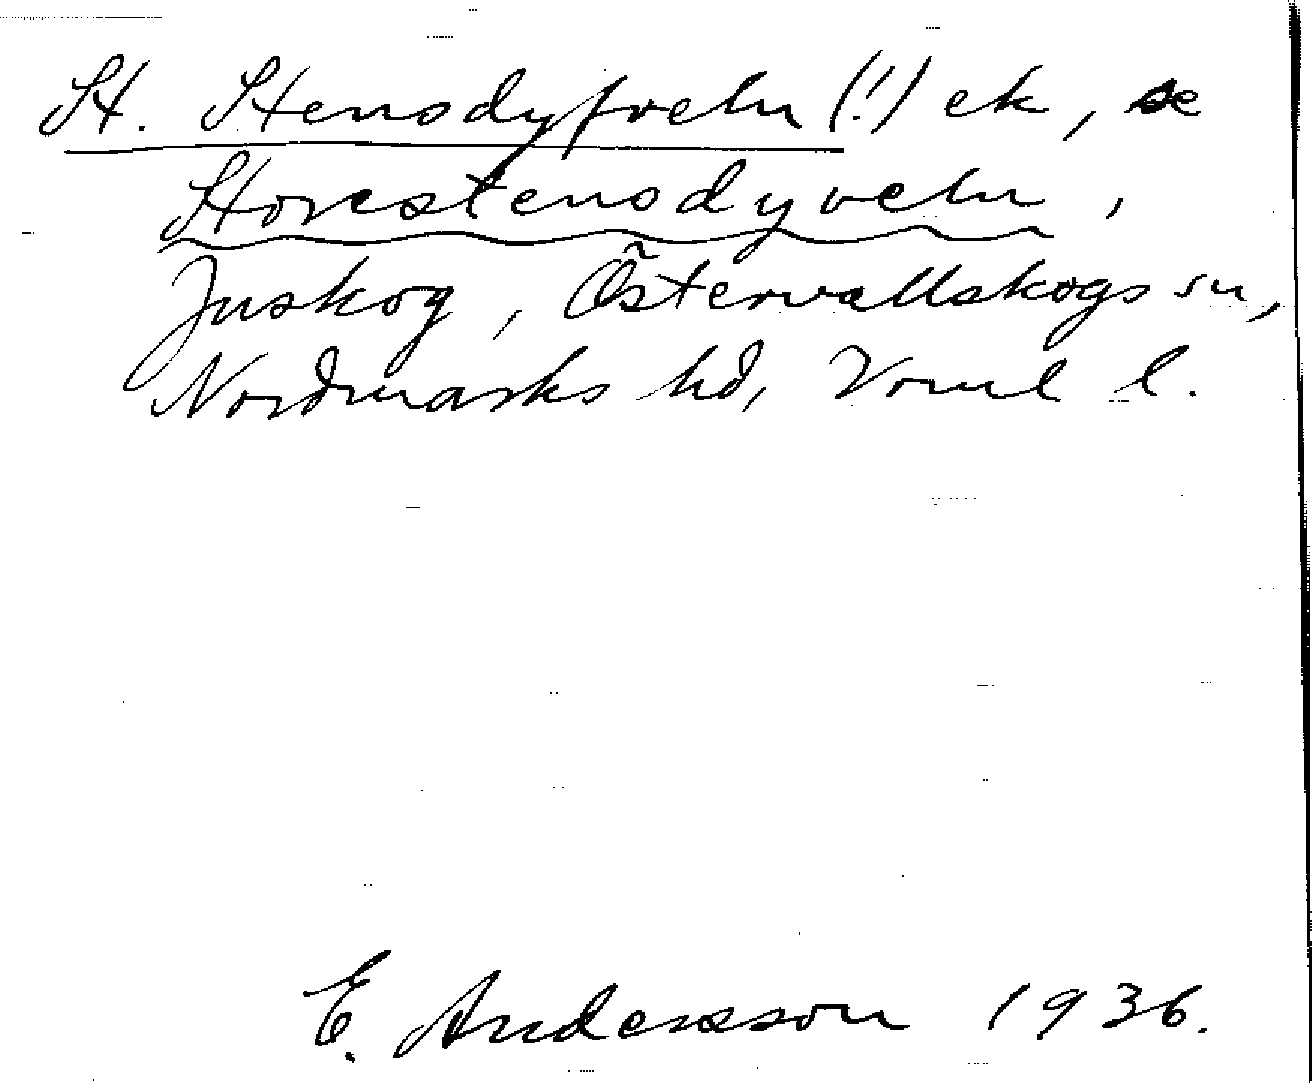 St. Stensdyfveln (!) ek, se
Storestensdyveln,
Juskog, Östervallskogs sn,
Nordmarks hd, Vrml l.
E. Andersson 1936.